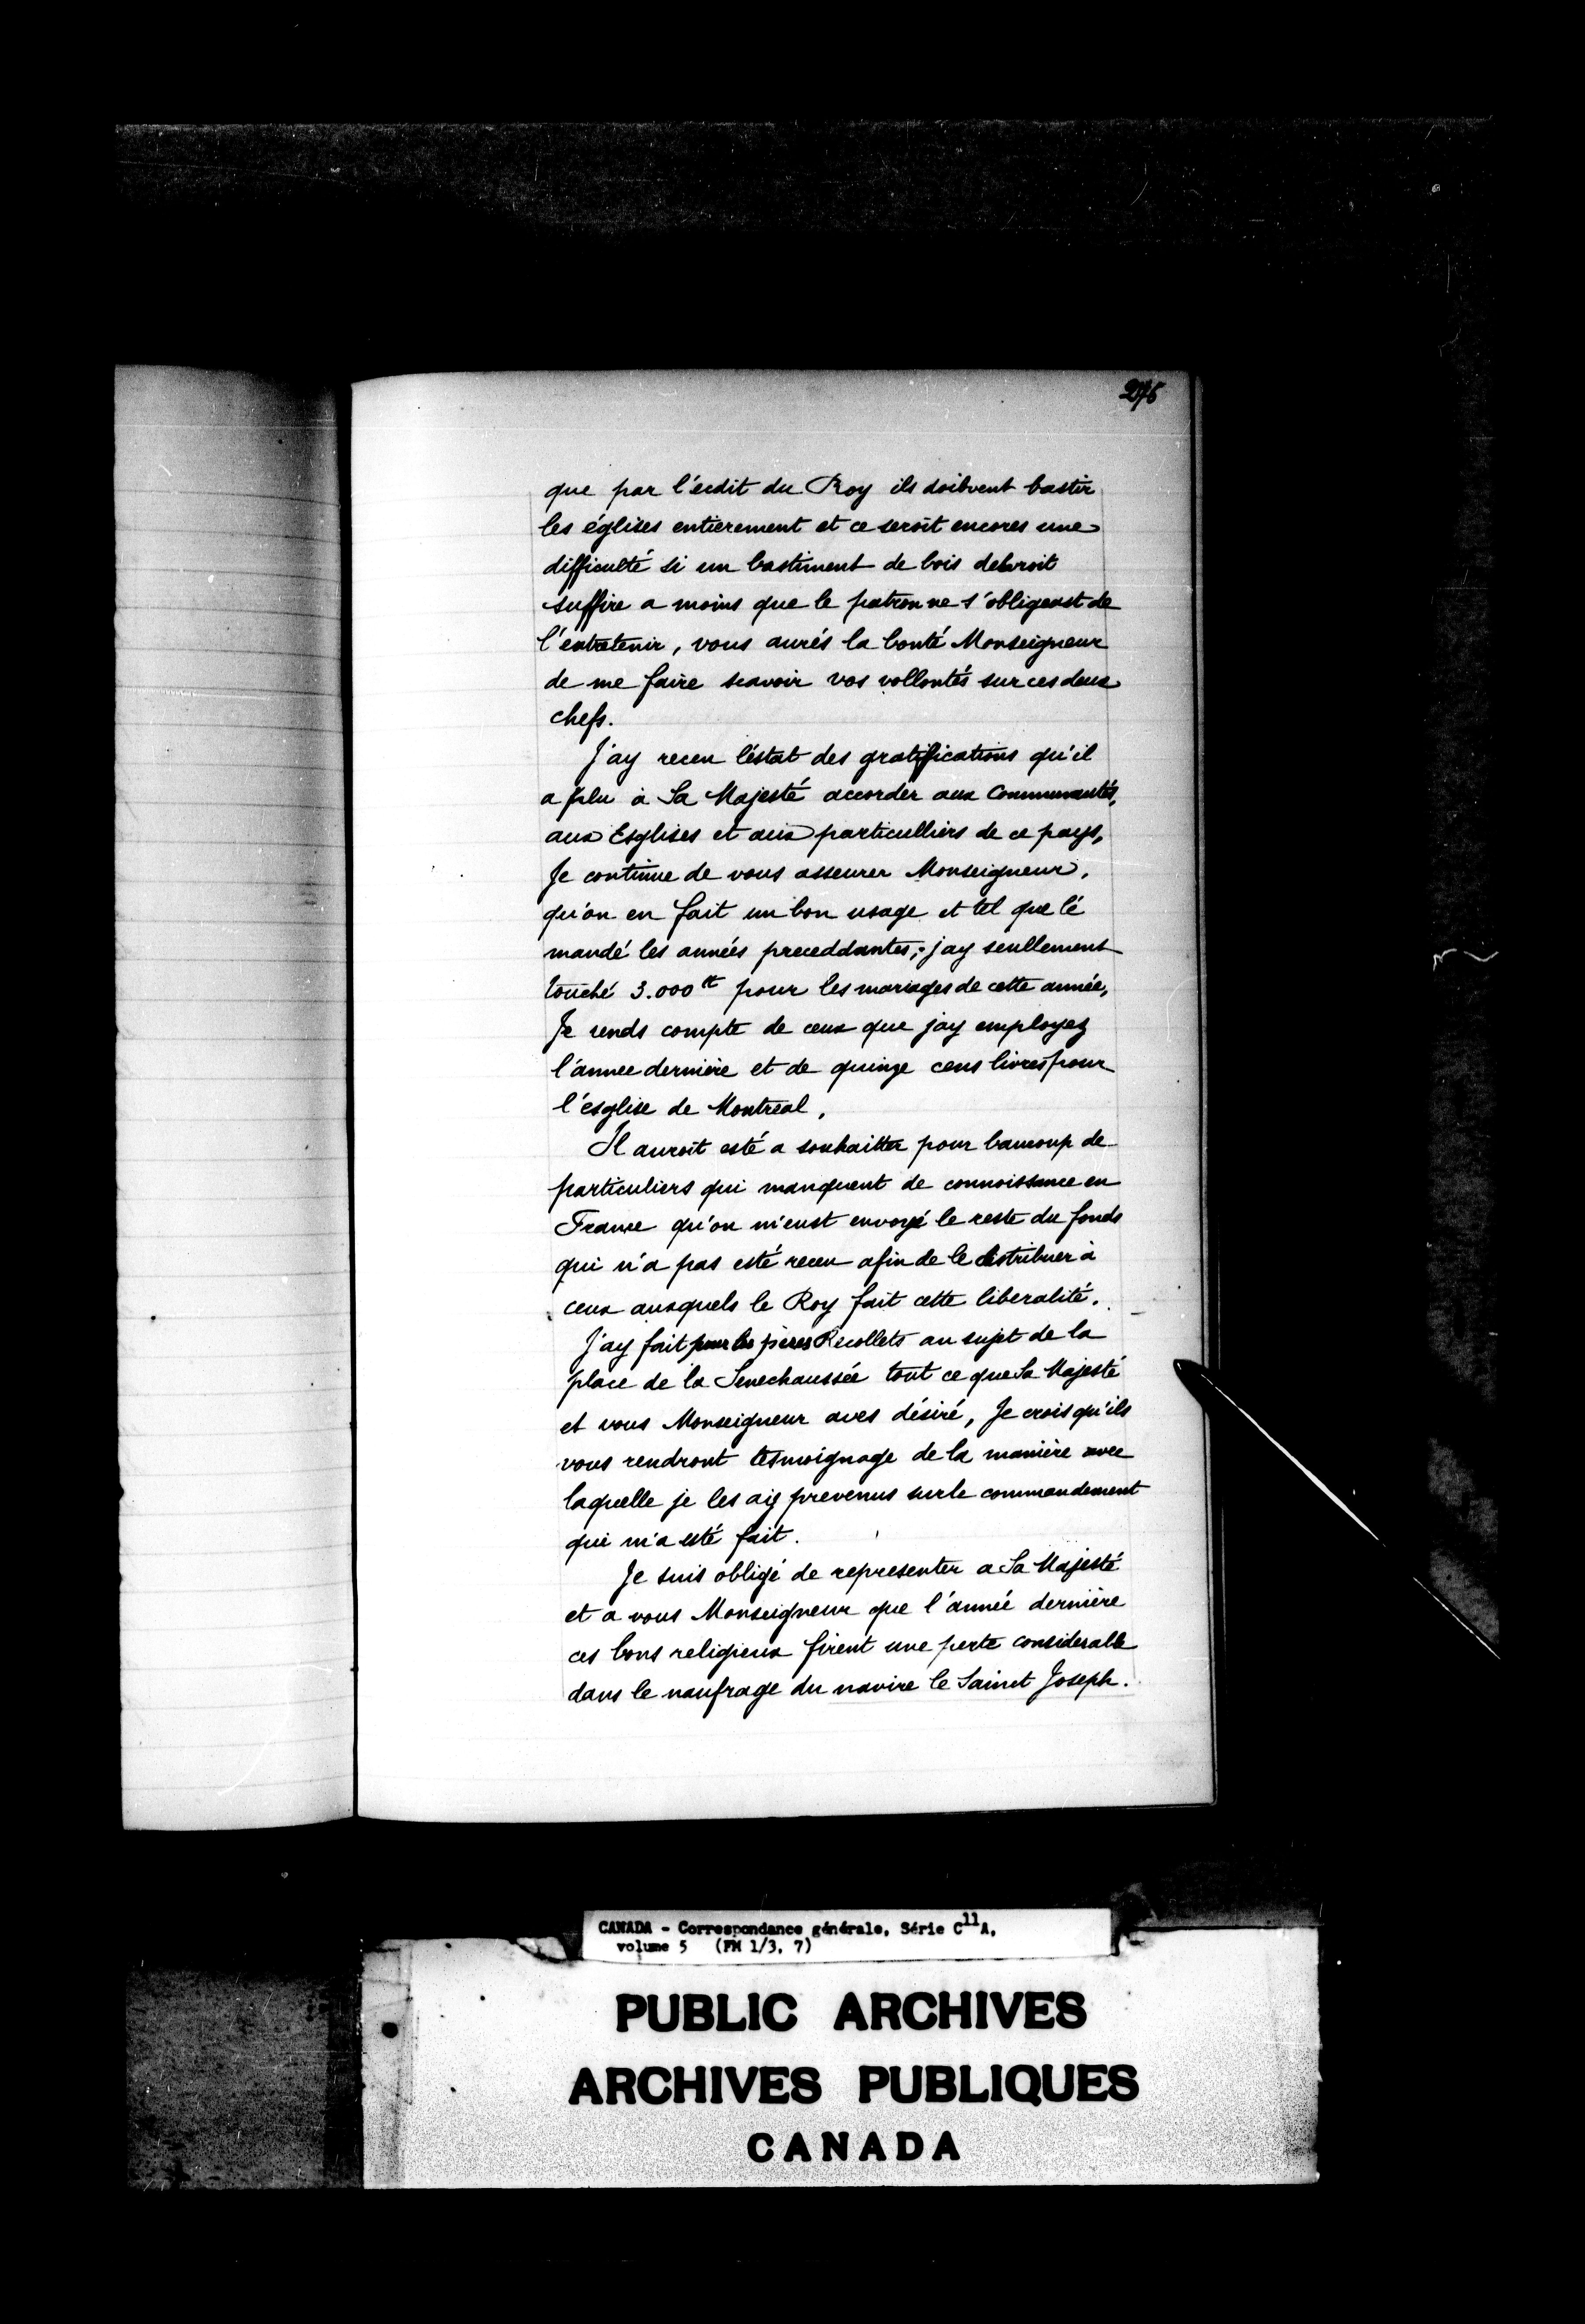 276
que par l'ecdit du Roy ils doibvent bastir
les églises entierement et ce seroit encores une
difficulté si un bastiment de bois debvroit
suffire a moins que le patron ne s'obligeast de
l'entretenir, vous aurés la bonté Monseigneur
de me faire scavoir vos vollontés sur ces deux
chefs.
J'ay receu léstat des gratifications qu'il
a plu à Sa Majesté accorder aux Communautés,
aux Esglises et aux particulliers de ce pays,
Je continue de vous asseurer Monseigneur,
qu'on en fait un bon usage et tel que lé
mandé les années preceddantes; jay seullement
touché 3.000 lt pour les mariages de cette année,
Je rends compte de ceux que jay employez
l'annee dernière et de quinze cens livres pour
l'esglise de Montreal,
Il auroit esté a souhaitter pour baucoup de
particuliers qui manquent de connoissance en
France qu'on m'eust envoyé le reste du fonds
qui n'a pas esté receu afin de le distribuer à
ceux ausquels le Roy fait cette liberalité.
J'ay fait pour les pères Recollets au sujet de la
place de la Senechaussée tout ce que Sa Majesté
et vous Monseigneur aves désiré, Je crois qu'ils
vous rendront tesmoignage de la manière avec
laquelle je les ay prevenus sur le commandement
qui m'a esté fait.
Je suis obligé de representer a Sa Majesté
et a vous Monseigneur que l'année dernière
ces bons religieux firent une perte considerable
dans le naufrage du navire le Sainct Joseph.
CANADA - Correspondance générale, Série C11A,
volume 5 (FM 1/3, 7)
PUBLIC ARCHIVES
ARCHIVES PUBLIQUES
CANADA